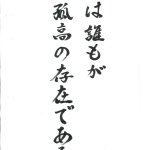 は誰もが
孤高の存在であ